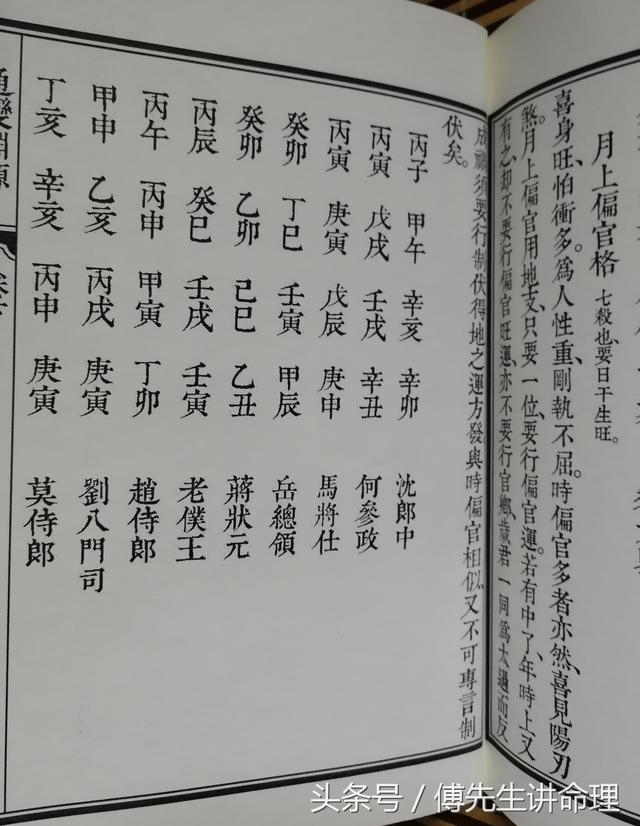 月上偏官格 七殺也、要日干生旺。
喜身旺、怕衝多。為人性重、剛執不屈。時偏官多者亦然、喜見陽刃
煞。月上偏官用地支、只要一位、要行偏官運。若有中了、年時上又
有之、却不要行偏官旺運、亦不要行官鄉、歲君一同、為太過而反
成禍須要行制伏得地之運、方發。與時偏官相似、又不可專言制
伏矣。
丙子 甲午 辛亥 辛卯 沈郎中
丙寅 戊戌 壬戌 辛丑 何參政
丙寅 庚寅 戊辰 庚申 馬將仕
癸卯 丁巳 壬寅 甲辰 岳總領
癸卯 乙卯 己巳 乙丑 蔣狀元
丙辰 癸巳 壬戌 壬寅 老僕王
丙午 丙申 甲寅 丁卯 趙侍郎
甲申 乙亥 丙戌 庚寅 劉八門司
丁亥 辛亥 丙申 庚寅 莫侍郎
變淵源
头条号 / 傅先生讲命理